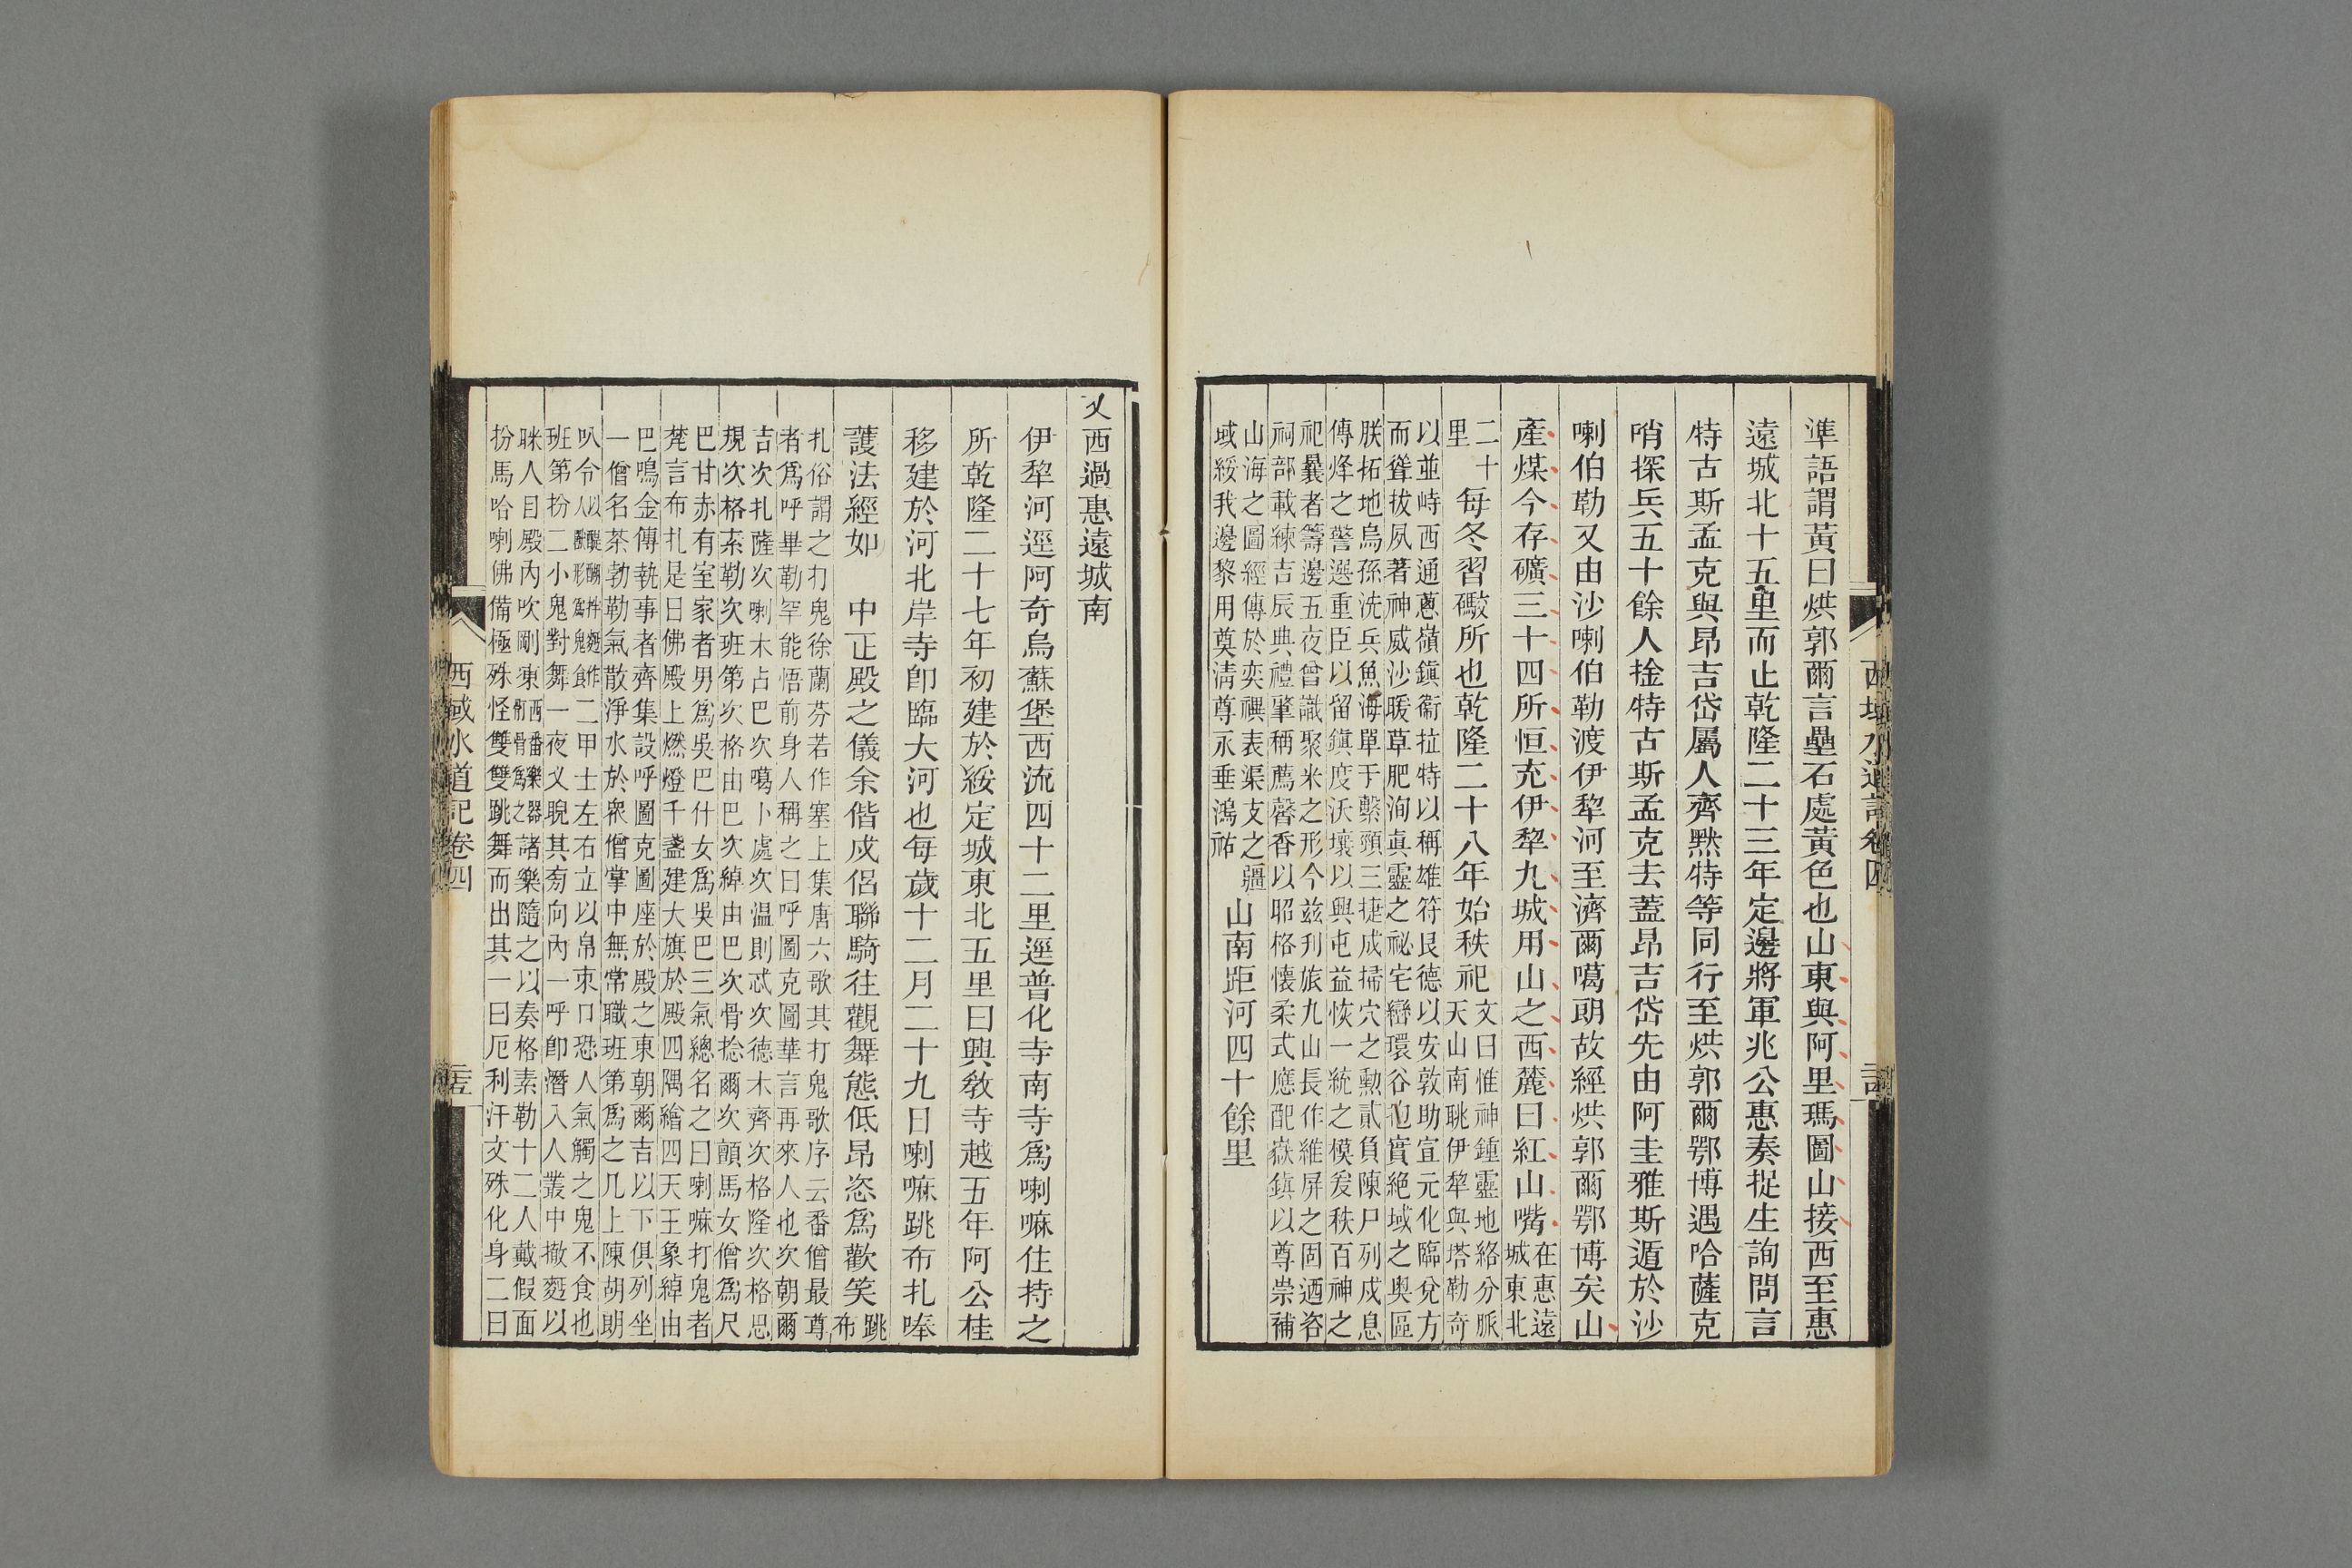 準語謂黃曰烘郭爾言壘石處黃色也山東與阿里瑪圖山接西至惠
遠城北十五里而止乾隆二十三年定邊將軍兆公惠奏捉生詢問言
特古斯孟克與昂吉岱屬人齊默特等同行至烘郭爾鄂博遇哈薩克
哨探兵五十餘人捦特古斯孟克去蓋昂吉岱先由阿圭雅斯遁於沙
喇伯勒又由沙喇伯勒渡伊犂河至濟爾噶朗故經烘郭爾鄂博矣山
產煤今存礦三十四所恒充伊犂九城用山之西麓曰紅山嘴在惠遠城東北
二十里每冬習礮所也乾隆二十八年始秩祀文曰惟神鍾靈地絡分脈天山南眺伊犂與塔勒奇
以並峙西通蔥嶺鎭衞拉特以稱雄符艮德以安敦助宣元化臨兌方
而聳拔夙著神威沙暖草肥洵眞靈之祕宅巒環谷也實絕域之奧區
朕拓地烏孫洗兵魚海單于繫頸三捷成掃穴之勳貳負陳尸列戍息
傳烽之警選重臣以留鎭度沃壤以興屯益恢一統之模爰秩百神之
祀曩者籌邊五夜曾識聚米之形今兹刋旅九山長作維屏之固迺咨
祠部載練吉辰典禮肇稱薦馨香以昭格懷柔式應配嶽鎭以尊崇補
山海之圖經傳於奕禩表渠支之疆
域綏我邊黎用奠淸尊永垂鴻祐
山南距河四十餘里
西域水道記卷四
又西過惠遠城南
伊犂河逕阿奇烏蘇堡西流四十二里逕普化寺南寺爲喇嘛住持之
所乾隆二十七年初建於綏定城東北五里曰興敎寺越五年阿公桂
移建於河北岸寺卽臨大河也每歲十二月二十九日喇嘛跳布扎唪
護法經如　中正殿之儀余偕戍侶聯騎往觀舞態低昂恣爲歡笑跳布
扎俗謂之打鬼徐蘭芬若作塞上集唐六歌其打鬼歌序云番僧最尊
者爲呼畢勒罕能悟前身人稱之曰呼圖克圖華言再來人也次朝爾
吉次扎薩次喇木占巴次噶卜處次溫則忒次德木齊次格隆次格思
規次格素勒次班第次格由巴次綽由巴次骨捻爾次顫馬女僧爲尺
巴甘赤有室家者男爲吳巴什女爲吳巴三氣總名之曰喇嘛打鬼者
梵言布扎是日佛殿上燃燈千盞建大旗於殿四隅繪四天王象綽由
巴鳴金傳執事者齊集設呼圖克圖座於殿之東朝爾吉以下俱列坐
一僧名茶勃勒氣散淨水於衆僧掌中無常職班第爲之几上陳胡朗
叭令以醍醐拌麪作人醜形爲鬼餙二甲士左右立以帛束口恐人氣觸之鬼不食也
班第扮二小鬼對舞一夜乂睨其旁向內一呼卽潛入人叢中撤麪以
眯人目殿內吹剛東西番樂器刎骨爲之諸樂隨之以奏格素勒十二人戴假面
扮馬哈喇佛備極殊怪雙雙跳舞而出其一曰厄利汗文殊化身二曰
西域水道記卷四